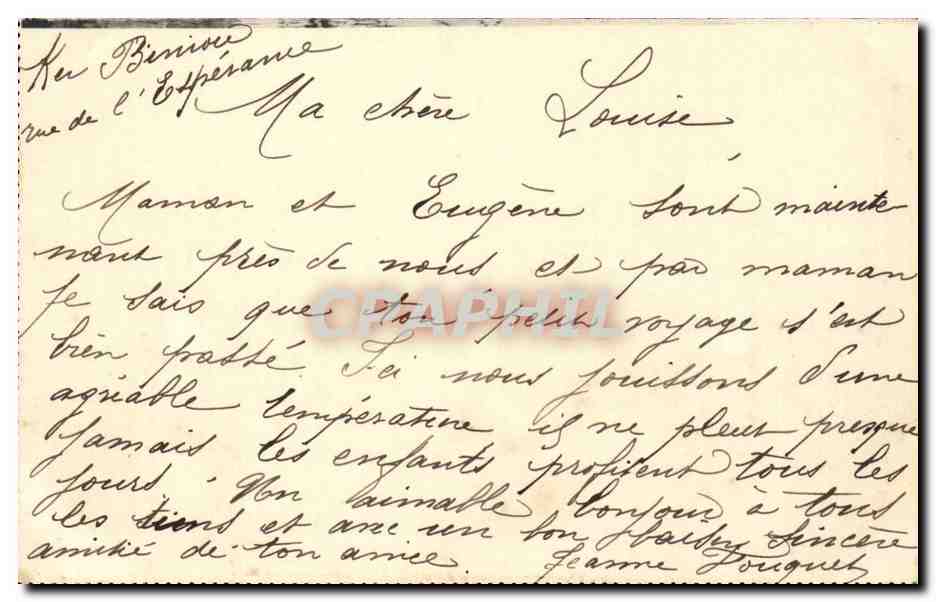 Ker Biniou
rue de l'Espérance
Ma chère Louise
Maman et Eugène sont mainte
nant près de nous et par maman
je sais que ton petit voyage s'est
bien passé. Ici nous jouissons d'une
agréable température il ne pleut presque
jamais les enfants profitent tous les
jours. Un aimable bonjour à tous
les tiens et avec un bon baiser sincère
amitié de ton amie. Jeanne Fouquet
CPAPHIL